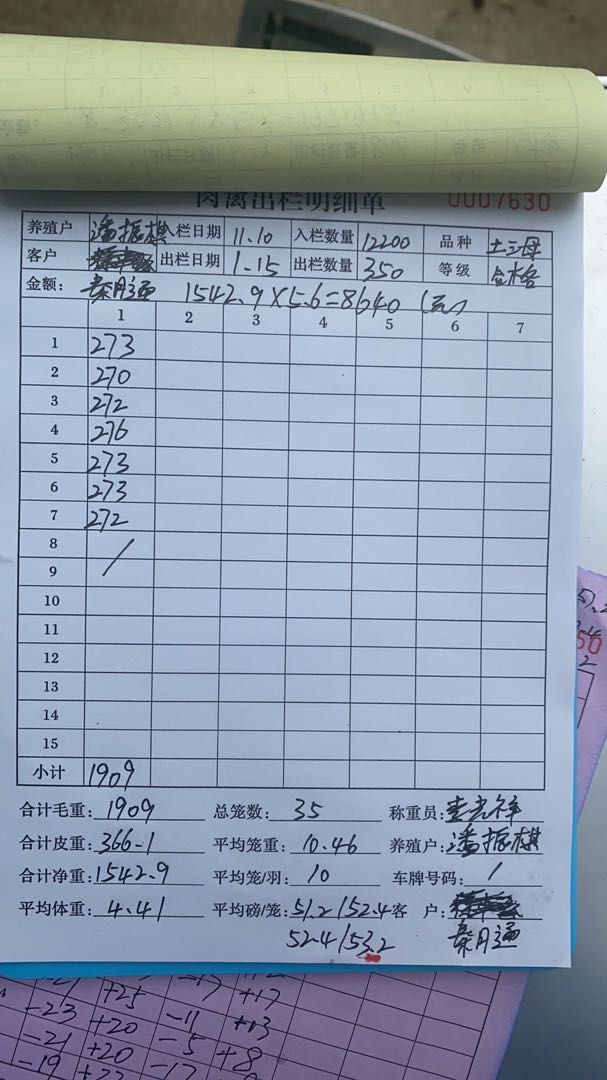 肉禽出栏明细单 0007630
养殖户 潘振棋 入栏日期 11.10 入栏数量 12200 品种 土三母
客户 出栏日期 1.15 出栏数量 350 等级 合格
金额: 1542.9×5.6=8640(元)
1 2 3 4 5 6 7
1 273
2 270
3 272
4 276
5 273
6 273
7 272
8 /
9
10
11
12
13
14
15
小计 1909
合计毛重: 1909 总笼数: 35 称重员:
合计皮重: 366.1 平均笼重: 10.46 养殖户: 潘振棋
合计净重: 1542.9 平均笼/羽: 10 车牌号码: /
平均体重: 4.41 平均磅/笼: 51.2/52.4 客户:
52.4/53.2
-23 +20 -11 +13
-21 +20 -5 +8
-19